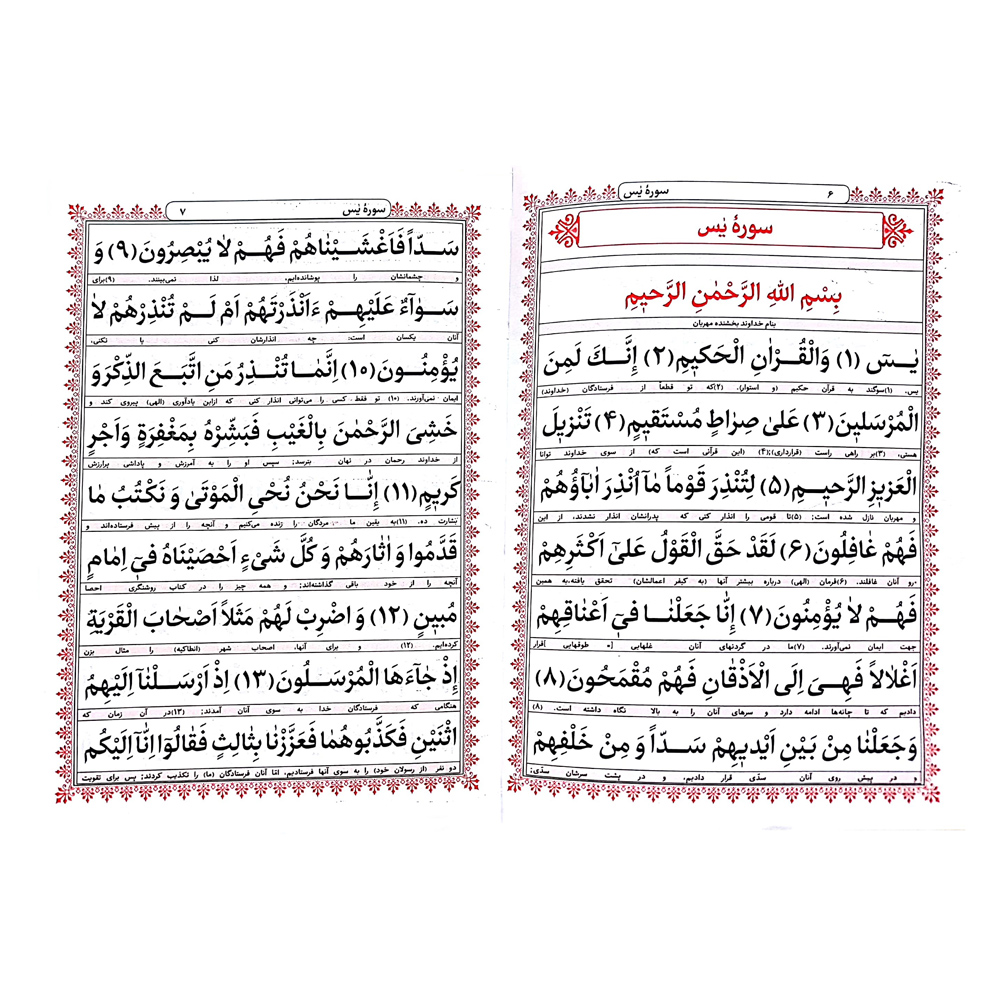 ۶
سورهٔ یٰس
سورهٔ یٰس
بِسْمِ اللهِ الرَّحْمٰنِ الرَّحیٖمِ
بنام خداوند بخشنده مهربان
یٰسٓ (۱) وَالْقُرْاٰنِ الْحَکیٖمِ (۲) إِنَّكَ لَمِنَ
یس. (۱)سوگند به قرآن حکیم (و استوار). (۲)که تو قطعاً از فرستادگان (خداوند)
الْمُرْسَلیٖنَ (۳) عَلیٰ صِرٰاطٍ مُسْتَقیٖمٍ (۴) تَنْزیٖلَ
هستی، (۳)بر راهی راست (قرارداری)؛(۴) (این قرآنی است که) از سوی خداوند توانا
الْعَزیٖزِ الرَّحیٖمِ (۵) لِتُنْذِرَ قَوْماً مٰٓا اُنْذِرَ اٰبٰٓاؤُهُمْ
و مهربان نازل شده است؛ (۵)تا قومی را انذار کنی که پدرانشان انذار نشدند، از این
فَهُمْ غٰافِلُونَ (۶) لَقَدْ حَقَّ الْقَوْلُ عَلیٰٓ اَکْثَرِهِمْ
رو آنان غافلند. (۶)فرمان (الهی) درباره بیشتر آنها (به کیفر اعمالشان) تحقق یافته،به همین
فَهُمْ لاٰ یُؤْمِنُونَ (۷) إِنّٰا جَعَلْنٰا فیٖٓ اَعْنٰاقِهِمْ
جهت ایمان نمی‌آورند. (۷)ما در گردنهای آنان غلهایی [= طوقهایی ]قرار
اَغْلاٰلاً فَهِیَ اِلَی الْاَذْقٰانِ فَهُمْ مُقْمَحُونَ (۸)
دادیم که تا چانه‌ها ادامه دارد و سرهای آنان را به بالا نگاه داشته است. (۸)
وَ جَعَلْنٰا مِنْ بَیْنِ اَیْدیٖهِمْ سَدّاً وَ مِنْ خَلْفِهِمْ
و در پیش روی آنان سدّی قرار دادیم، و در پشت سرشان سدّی؛
سورهٔ یٰس
۷
سَدّاً فَاَغْشَیْنٰاهُمْ فَهُمْ لاٰ یُبْصِرُونَ (۹) وَ
و چشمانشان را پوشانده‌ایم، لذا نمی‌بینند. (۹)برای
سَوٰٓاءٌ عَلَیْهِمْ ءَاَنْذَرْتَهُمْ اَمْ لَمْ تُنْذِرْهُمْ لاٰ
آنان یکسان است: چه انذارشان کنی یا نکنی،
یُؤْمِنُونَ (۱۰) اِنَّمٰا تُنْذِرُ مَنِ اتَّبَعَ الذِّکْرَ وَ
ایمان نمی‌آورند. (۱۰) تو فقط کسی را می‌توانی انذار کنی که ازاین یادآوری (الهی) پیروی کند و
خَشِیَ الرَّحْمٰنَ بِالْغَیْبِ فَبَشِّرْهُ بِمَغْفِرَةٍ وَ اَجْرٍ
از خداوند رحمان در نهان بترسد؛ سپس او را به آمرزش و پاداشی پرارزش
کَریٖمٍ (۱۱) إِنّٰا نَحْنُ نُحْیِ الْمَوْتیٰ وَ نَکْتُبُ مٰا
بشارت ده. (۱۱)به یقین ما مردگان را زنده می‌کنیم و آنچه را از پیش فرستاده‌اند و
قَدَّمُوا وَ اٰثٰارَهُمْ وَ کُلَّ شَیْءٍ اَحْصَیْنٰاهُ فیٖٓ اِمٰامٍ
آنچه را از خود باقی گذاشته‌اند؛ و همه چیز را در کتاب روشنگری احصا
مُبیٖنٍ (۱۲) وَ اضْرِبْ لَهُمْ مَثَلاً اَصْحٰابَ الْقَرْیَةِ
کرده‌ایم. (۱۲) و برای آنها، اصحاب شهر (انطاکیه) را مثال بزن
إِذْ جٰٓاءَهَا الْمُرْسَلُونَ (۱۳) اِذْ اَرْسَلْنٰٓا اِلَیْهِمُ
هنگامی که فرستادگان خدا به سوی آنان آمدند؛ (۱۳)در آن زمان که
اثْنَیْنِ فَکَذَّبُوهُمٰا فَعَزَّزْنٰا بِثٰالِثٍ فَقٰالُوٓا اِنّٰٓا اِلَیْکُم
دو نفر (از رسولان خود) را به سوی آنها فرستادیم، امّا آنان فرستادگان (ما) را تکذیب کردند؛ پس برای تقویت